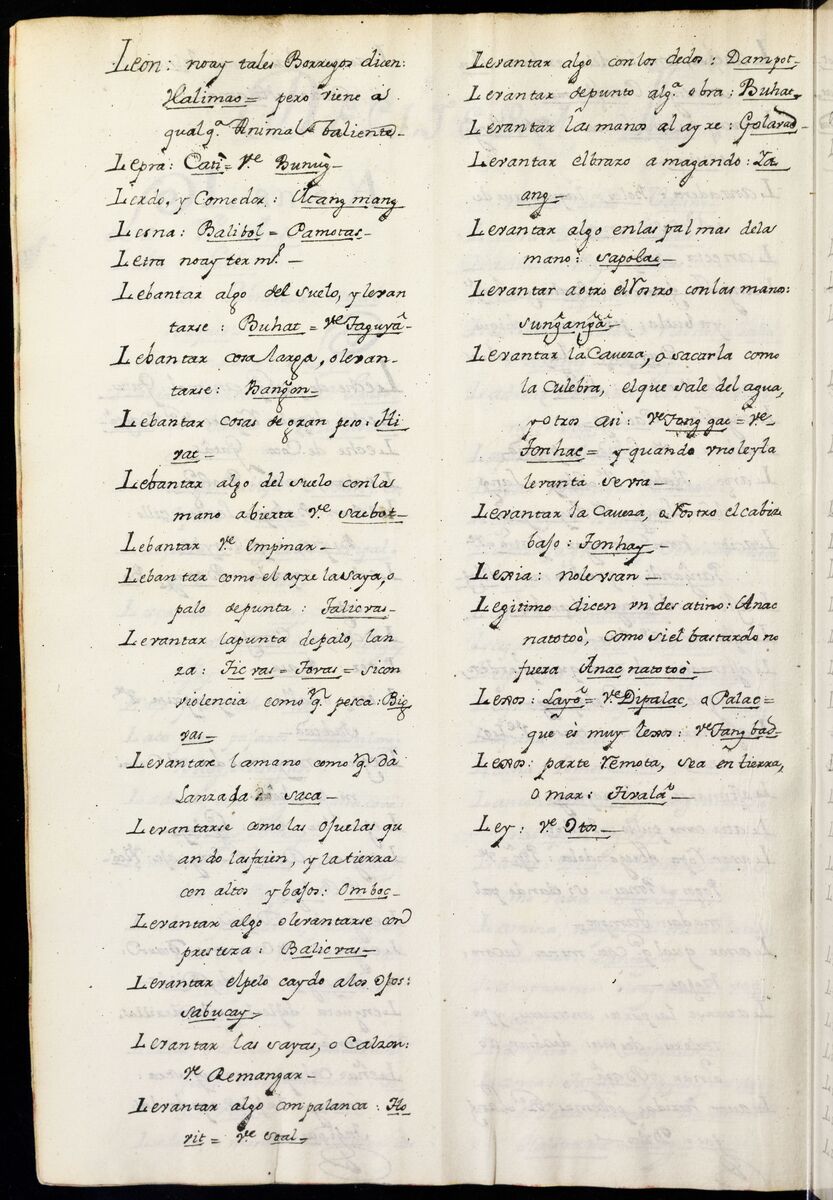 Leon: noay tales Borregos dicen:
Halimao= pero viene a
qualq.ª Animal Valiente_
Lepra: Cati= V.e Bunùg_
Lerdo, y Comedor: Ucang mang
Lesna: Balibol= Pamotas_
Letra noay term.º _
Lebantar algo del suelo, y levan
tarse: Buhat= V.e Taguyã_
Lebantar cosa larga, olevan-
tarse: Bang̃on_
Lebantar cosas de gran peso: Hi
rat_
Lebantar algo del suelo conlas
mano abierta V.e Sacbot_
Lebantar V.e Empinar_
Lebantar como el ayre lasaya, o
palo depunta: Talicvas_
Levantar lapunta depalo, lan
za: Ticvas= Tovas= sicon
violencia como q.e pesca: Big
vas_
Levantar lamano como q.n dà
Lanzada: Saca_
Levantarse como las Ojuelas qu
ando lasfrien, y la tierra
con altos y bajos: Omboc_
Levantar algo olevantarse con
presteza: Balicvas_
Levantar elpelo caydo alos Ojos:
Sabucay_
Levantar las sayas, o Calzon:
V.e Remangar_
Levantar algo conpalanca: Ho
vit= V.e Soal_
Levantar algo conlos dedos: Dampot_
Levantar depunto alg.ª obra: Buhat_
Levantar las manos al ayre: Golavad_
Levantar elbrazo amagando: Ya
ang_
Levantar algo enlas palmas dela
mano: Sapolac_
Levantar aotro elRostro conlas manos:
Sung̃ang̃ã_
Levantar la Caveza, o sacarla como
la Culebra, elque sale del agua,
yotros asi: V.e Tong gac= V.e
Tonhac= y quando vnoleyla
levanta Seria_
Levantar la Caveza, o Rostro el cabiz
bajo: Tonhay_
Lexia: nolevsan_
Legitimo dicen vn desatino: Anac
natotoò, como siel bastardo no
fuera Anac natotoò_
Lexos: Layõ= V.e Dipalac, o Palac=
que es muy lexos: V.e Tang bad_
Lexos: parte Remota, sea en tierra,
o mar: Tivalã_
Ley: V.e Otos_